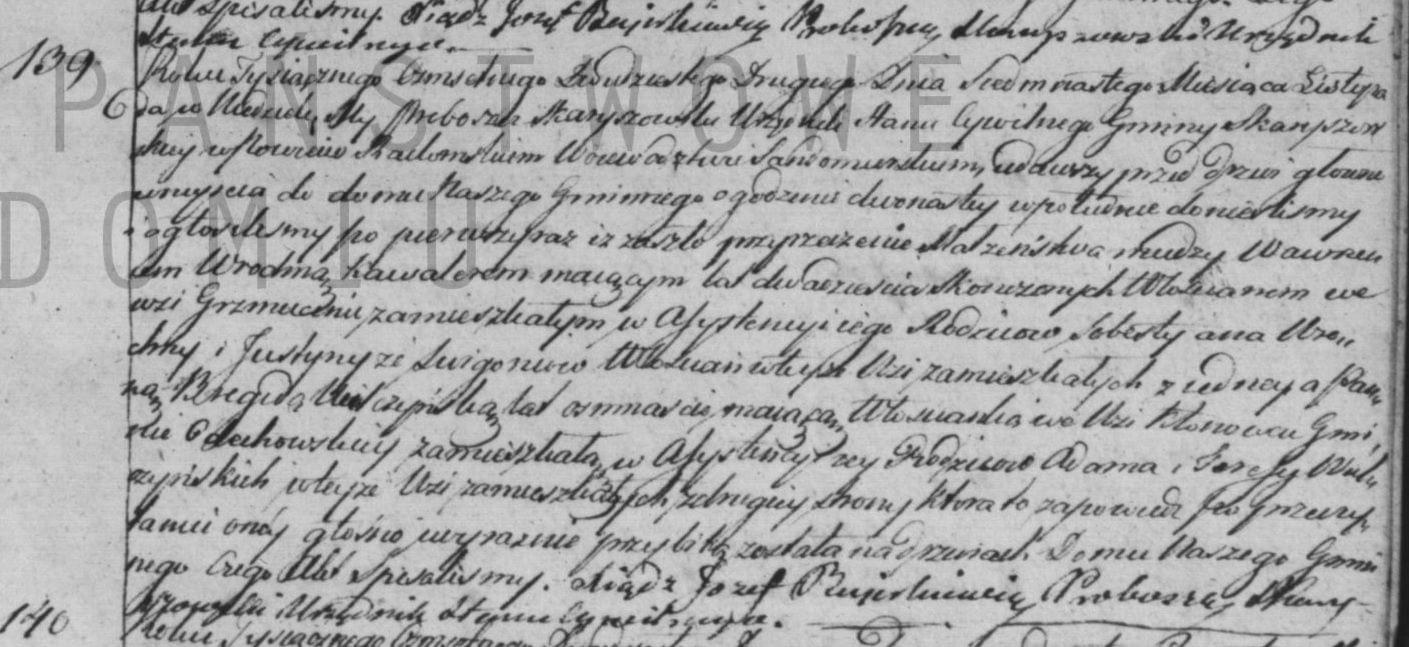 Akt spisaliśmy. Xiądz Jozef Proboszcz Urzędnik
Stanu Cywilnego.
139 Roku Tysiącznego Ośmsetnego Dwudziestego Drugiego Dnia Siedmnastego Miesiąca Listopa
6 da w Niedzielę, My Proboszcz Skaryszewski Urzędnik Stanu Cywilnego Gminy Skaryszew
skiey w Powiecie Radomskim Woiewodztwie Sandomirskim, udawszy przed drzwi głowne
wnyjścia do domu Naszego Gminnego o godzinie dwonastey w południe donieslismy
i ogłosilismy po pierwszy raz iż zaszło przyrzeczenie Małżeństwa między Wawrzeń
cem Wrochną Kawalerem maiącym lat dwadzieścia skonczonych Włościanem we
wzi Grzmucinie zamieszkałym w Assystencyi iego Rodzicow Sobestyana Wro„
chny i Justyny ze Swigoniow Włościan wteyże Wzi zamieszkałych z iedney a Pan„
ną Brygidą lat osmnascie maiącą, Włościanką we Wzi Kłonowcu Gmi„
nie Odechowskiey zamieszkałą, w Assystencyi iey Rodzicow Adama i Teressy
czyńskich wteyże Wzi zamieszkałych zdrugiey strony ktora to zapowiedz po przeczy„
taniu oney głośno iwyraznie przybitą została na drzwiach Domu Naszego Gmin
nego Czego Akt Spisalismy. Xiądz Jozef Proboszcz Skary„
szewski Urzędnik Stanu Cywilnego.
140 Roku Tysiącznego Ośmsetnego
PAŃSTWOWE
DOMIU